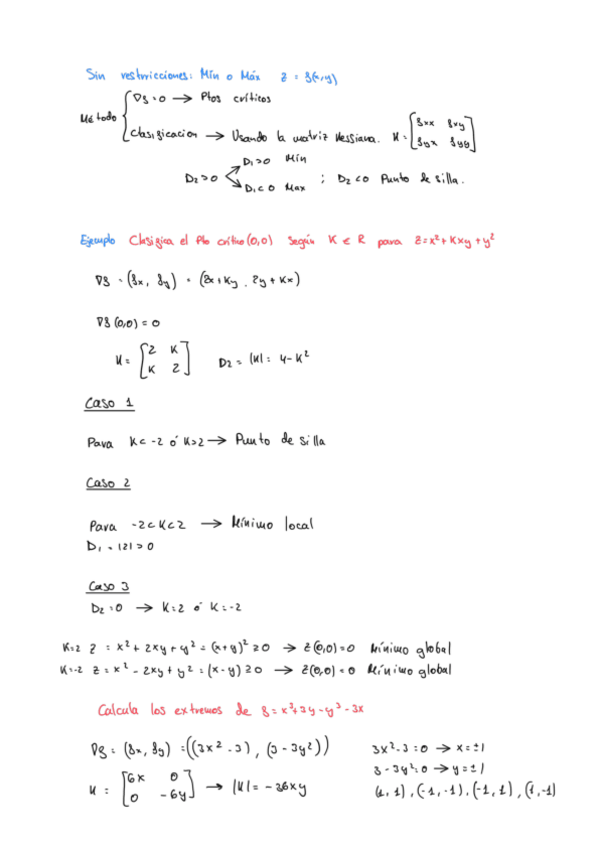 Sin restricciones: Mín o Máx z = f(x,y)
Método { ∇f=0 → Ptos críticos
Clasificacion → Usando la matriz Hessiana. H = [fxx fxy
fyx fyy]
D2>0 < D1>0 Min
D1<0 Max ; D2<0 Punto de silla.
Ejemplo Clasifica el Pto crítico (0,0) Según K ∈ R para z=x²+Kxy+y²
∇f = (fx, fy) = (2x+Ky, 2y+Kx)
∇f(0,0)=0
H = [2 K
K 2] D2 = |H| = 4-K²
Caso 1
Para K<-2 ó K>2 → Punto de silla
Caso 2
Para -2<K<2 → Mínimo local
D1 = |2|>0
Caso 3
D2=0 → K=2 ó K=-2
K=2 z = x²+2xy+y² = (x+y)² ≥0 → z(0,0)=0 Mínimo global
K=-2 z = x²-2xy+y² = (x-y) ≥0 → z(0,0)=0 Mínimo global
Calcula los extremos de f=x³+3y-y³-3x
∇f = (fx, fy) = ((3x²-3), (3-3y²)) 3x²-3=0 → x=±1
3-3y²=0 → y=±1
H = [6x 0
0 -6y] → |H| = -36xy (1,1), (-1,-1), (-1,1), (1,-1)